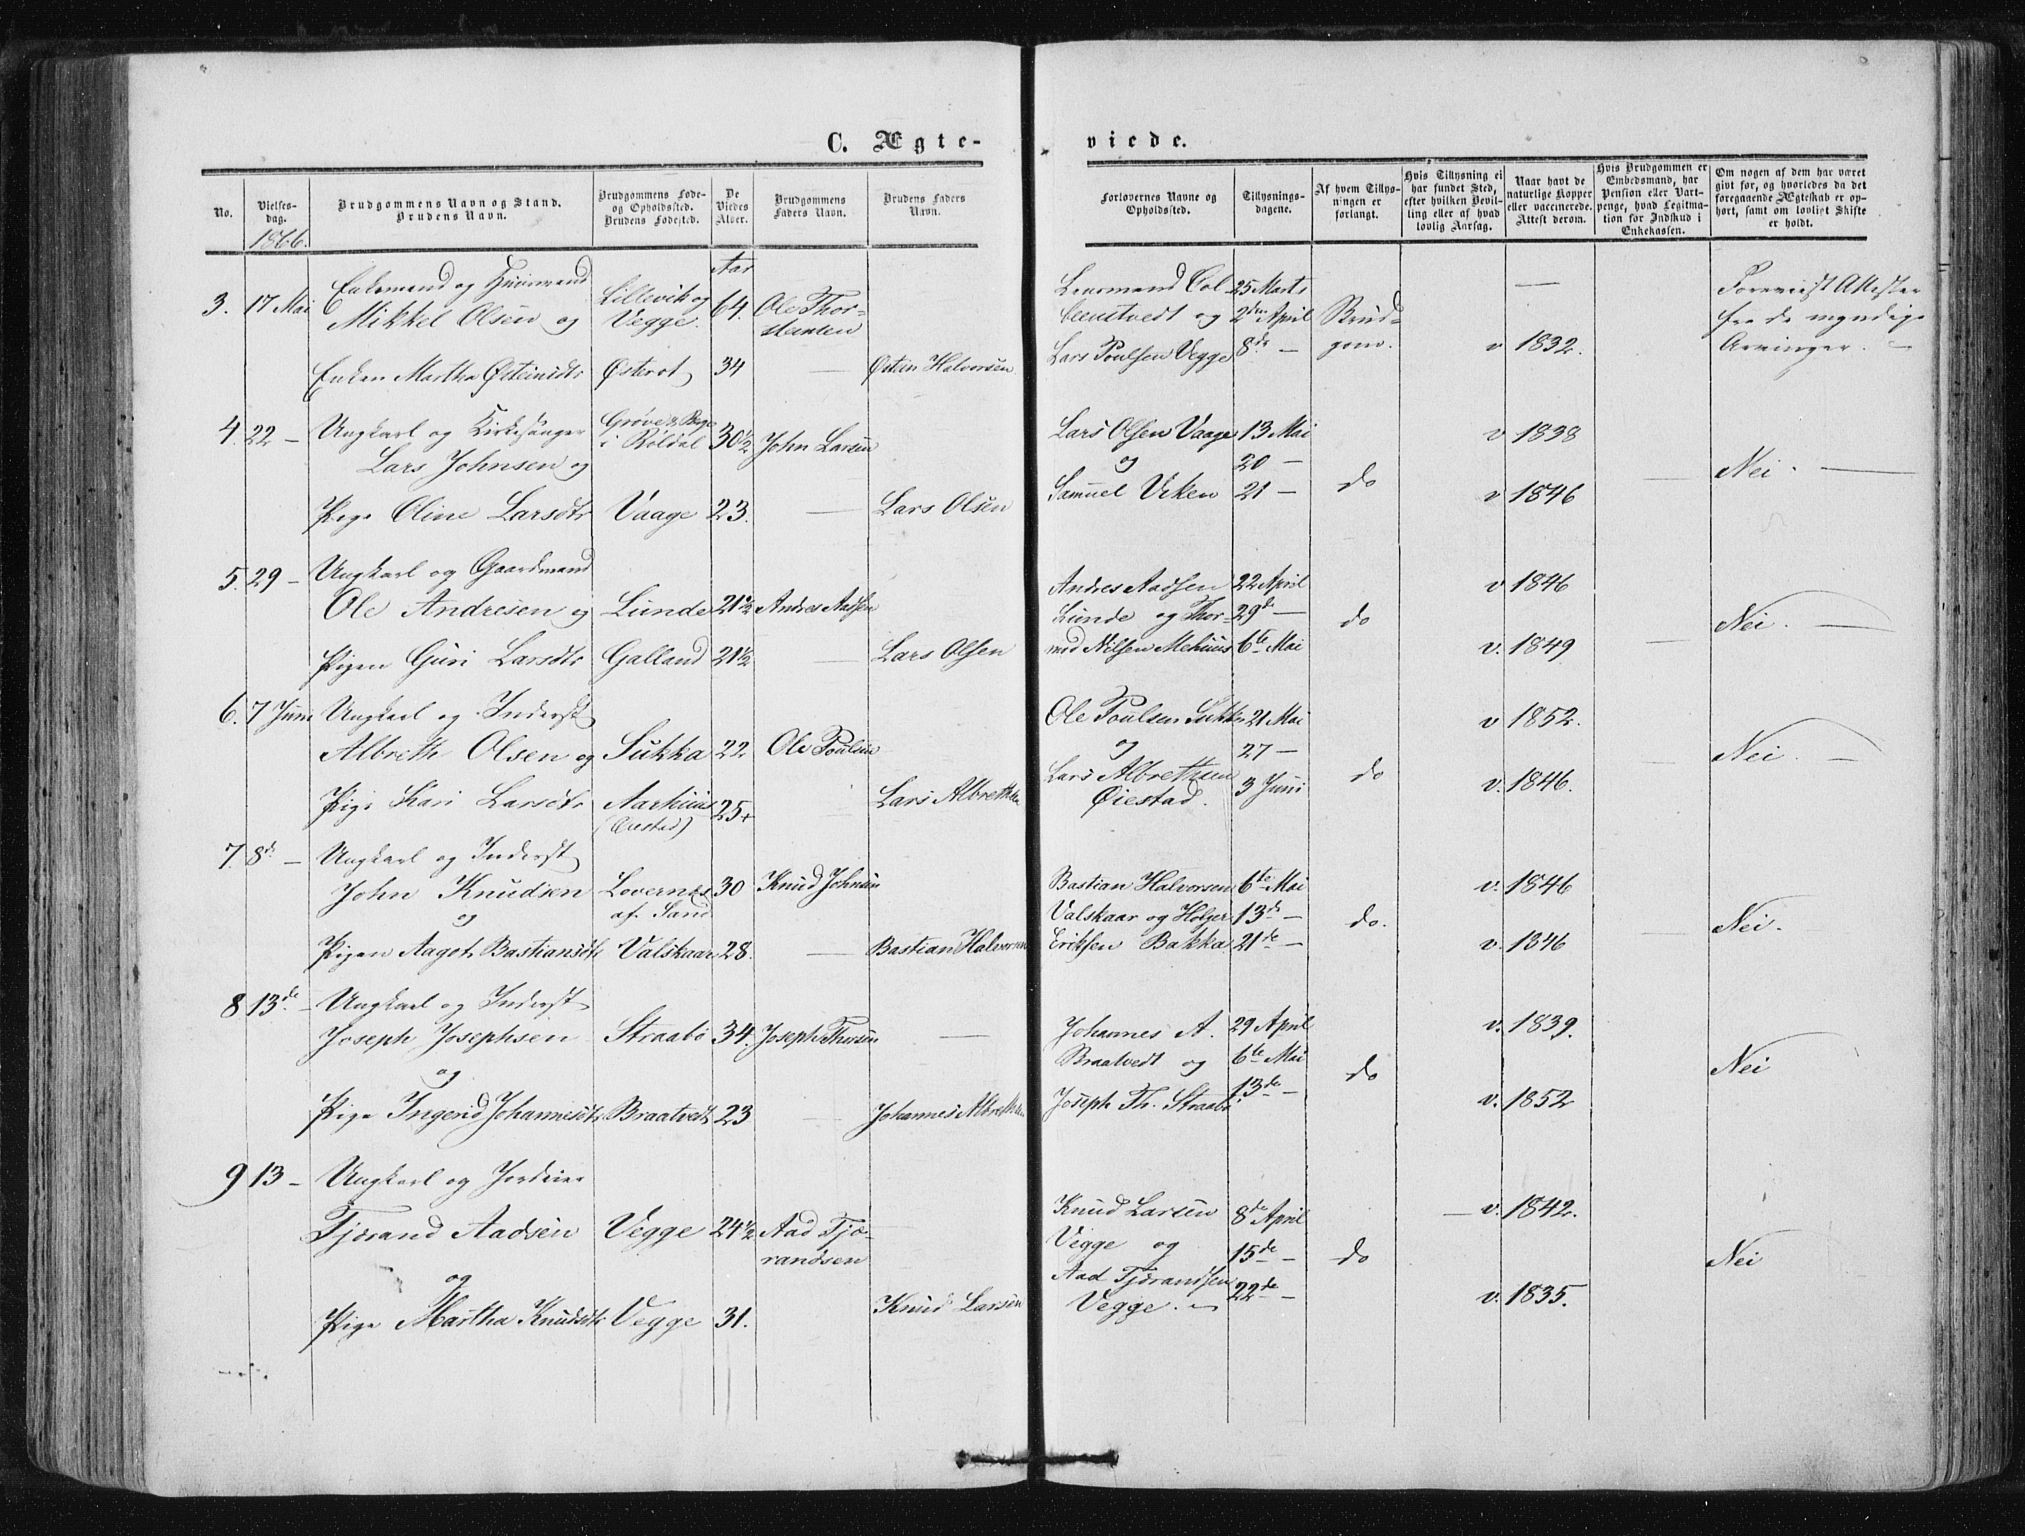 C. Ægte-
viede.
No.
Vielses-
dag.
1866.
Brudgommens Navn og Stand.
Brudens Navn.
Brudgommens Føde-
og Opholdssted.
Brudens Fødested.
De
Viedes
Alder.
Brudgommens
Faders Navn.
Brudens Faders
Navn.
Forlovernes Navne og
Opholdssted.
Tillysnings-
dagene.
Af hvem Tillys-
ningen er
forlangt.
Hvis Tillysning ei
har fundet Sted,
efter hvilken Bevil-
ling eller af hvad
lovlig Aarsag.
Naar havt de
naturlige Kopper
eller vaccinerede.
Attest derom.
Hvis Brudgommen er
Embedsmand, har
Pension eller Vart-
penge, hvad Legitima-
tion for Indskud i
Enkekassen.
Om nogen af dem har været
givt før, og hvorledes da det
foregaaende Ægteskab er op-
hørt, samt om lovligt Skifte
er holdt.
Aar
3. 17 Mai
Enkemand og Huusmand
Mikkel Olsen og
Lillevik og
Vegge.
64.
Ole Thor-
stensen
Enken Martha Østeinsdtr
Østerot
34
—
Østein Halvorsen
Lensmand
og
Lars Poulsen Vegge
25 Marts
2den April
8de —
Brud-
gom.
—
v 1832.
Foreviist Attester
fra de myndige
Arvinger. —
4. 22 —
Ungkarl og Kirkesanger
Lars Johnsen og
i Røldal
30 1/2
John Larsen
Pige Oline Larsdtr
Vaage
23.
—
Lars Olsen
Lars Olsen Vaage
og
Samuel Viken
13 Mai
20 —
21 —
do
v 1838
v 1846
—
Nei. —
5. 29 —
Ungkarl og Gaardmand
Ole Andresen og
Lunde
21 1/2
Andres Aadsen
Pigen Guri Larsdtr
Galland
21 1/2
—
Lars Olsen
Andres Aadsen
Lunde og Thor-
mod Nilsen Mehuus
22 April
29de —
6te Mai
do
v 1846
v. 1849
—
Nei. —
6. 7 Juni
Ungkarl og Inderst
Albreth Olsen og
Sukka
22
Ole Poulsen
Pige Kari Larsdtr
Aarhuus
(Øiestad)
25+
Lars Albrethsen
Ole Poulsen Sukka
og
Lars Albrethsen
Øiestad.
21 Mai
27 —
3 Juni
do
v 1852.
v. 1846.
—
Nei. —
7. 8de —
Ungkarl og Inderst
John Knudsen
og
Lovernes
af Sand
30
Knud Johnsen
Pigen Aagot Bastiansdtr
Valskaar
28.
—
Bastian Halvorsen
Bastian Halvorsen
Valskaar og Holger
Eriksen Bakka
6te Mai
13de —
21de —
do.
v. 1846
v. 1846
—
Nei.
8 13de —
Ungkarl og Inderst
Joseph Josephsen
og
Straabø
34.
Joseph Thorsen
—
Pige Ingerid Johannesdtr
Braatvedt
23
—
Johannes Albrethsen
Johannes A.
Braatvedt og
Joseph Th. Straabø
29 April
6te Mai
13de —
do
v. 1839.
v. 1852
Nei
9 13 —
Ungkarl og Jordeier
Tjærand Aadsen
og
Vegge
24 1/2
Aad Tjæ-
randsen
Pige Martha Knudsdtr
Vegge
31.
Knud Larsen
Knud Larsen
Vegge og
Aad Tjærandsen
Vegge. —
8de April
15de —
22de —
do
v. 1842.
v. 1835.
Nei